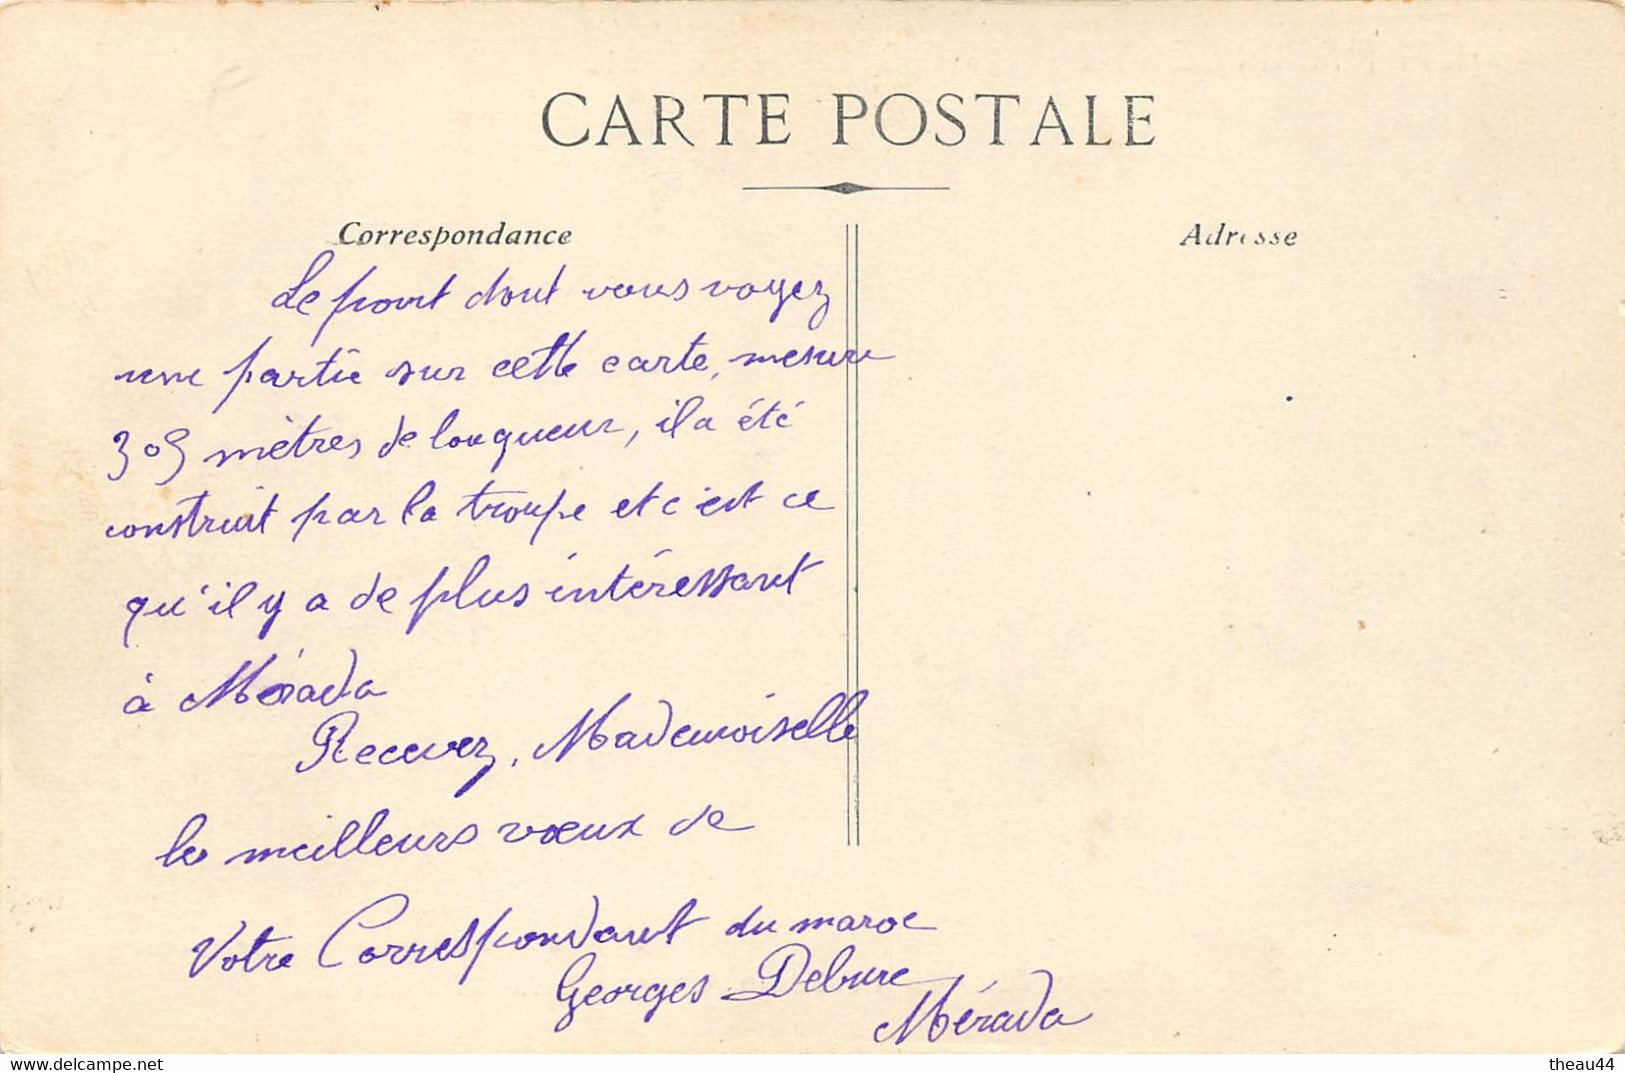 CARTE POSTALE
Correspondance
Adresse
Le pont dont vous voyez
une partie sur cette carte, mesure
305 mètres de longueur, il a été
construit par la troupe et c'est ce
qu'il y a de plus intéressant
à Mérada
Recevez, Mademoiselle
les meilleurs vœux de
Votre Correspondant du maroc
Georges Debure
Mérada
www.delcampe.net
theau44